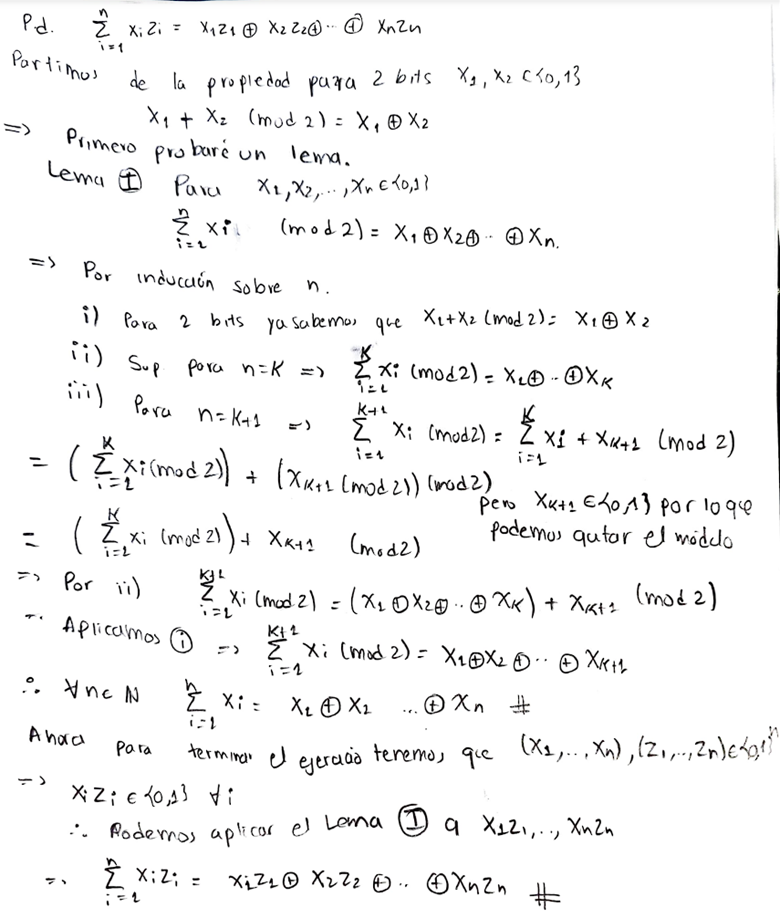 Pd. n Σ i=1 xizi = x1z1 ⊕ x2z2⊕ ·· ⊕ xnzn
Partimos de la propiedad para 2 bits x1, x2 ∈{0,1}
x1 + x2 (mod 2) = x1 ⊕ x2
=> Primero probaré un lema.
Lema Ⓘ Para x1,x2,..,xn ∈{0,1}
n Σ i=1 xi (mod 2) = x1⊕x2⊕·· ⊕xn.
=> Por inducción sobre n.
i) Para 2 bits ya sabemos que x1+x2 (mod 2) = x1⊕x2
ii) Sup para n=K => K Σ i=1 xi (mod 2) = x1⊕··⊕xK
iii) Para n=K+1 => K+1 Σ i=1 xi (mod 2) = K Σ i=1 xi + xK+1 (mod 2)
= (K Σ i=1 xi (mod 2)) + (xK+1 (mod 2)) (mod 2)
pero xK+1 ∈{0,1} por lo que
= (K Σ i=1 xi (mod 2)) + xK+1 (mod 2)
podemos quitar el módulo
=> Por ii) K+1 Σ i=1 xi (mod 2) = (x1⊕x2⊕··⊕xK) + xK+1 (mod 2)
Aplicamos ⓘ => K+1 Σ i=1 xi (mod 2) = x1⊕x2⊕··⊕xK+1
∴ ∀n∈N n Σ i=1 xi = x1⊕x2 ...⊕xn #
Ahora para terminar el ejercicio tenemos que (x1,..,xn),(z1,..,zn)∈{0,1}^n
=> xizi ∈{0,1} ∀i
∴ Podemos aplicar el Lema Ⓘ a x1z1,..,xnzn
=> n Σ i=1 xizi = x1z1⊕x2z2⊕··⊕xnzn #